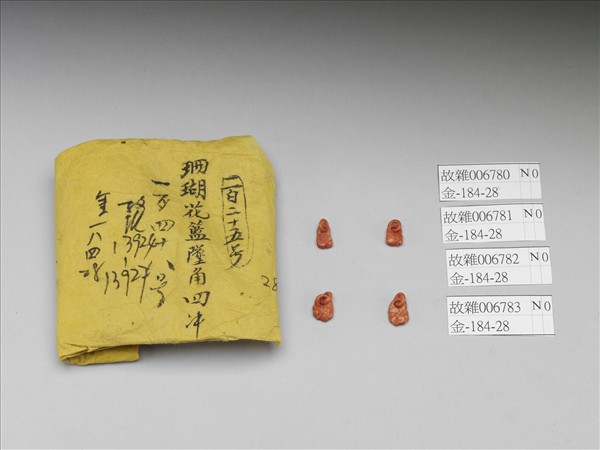 二百二十五号
珊瑚花籃墜角四件
一百四十八号
金一八四28
28
故雜006780 N0
金-184-28
故雜006781 N0
金-184-28
故雜006782 N0
金-184-28
故雜006783 N0
金-184-28